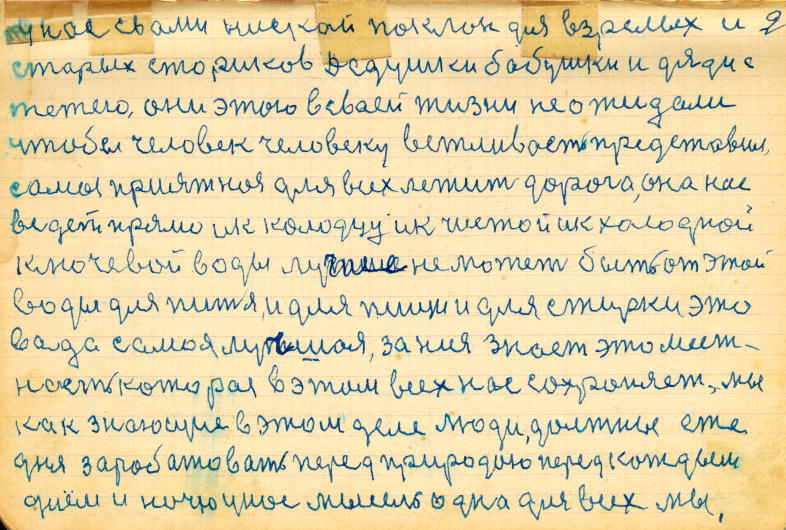 у нас свами ниской поклон для взрослых и 9
старых сториков дедушки бабушки и дяди с
тетего, они этого в сваей жизни не ожидали
чтобы человек человеку ветливасть представил,
самоя приятноя для всех лежит дорога, она нас
ведет прямо ик колодцу ик чистой ик холодной
ключевой воды лутше не может быть от этой
воды для питя, и для пищи и для стирки это
вада самоя лутшая, за ния знает это мест-
насть которая в этом всех нас сохроняет, мы
как знающие в этом деле люди, должны еже
дня заробатовать перед природою перед кождым
днём и ночю у нас мысль одна для всех мы,